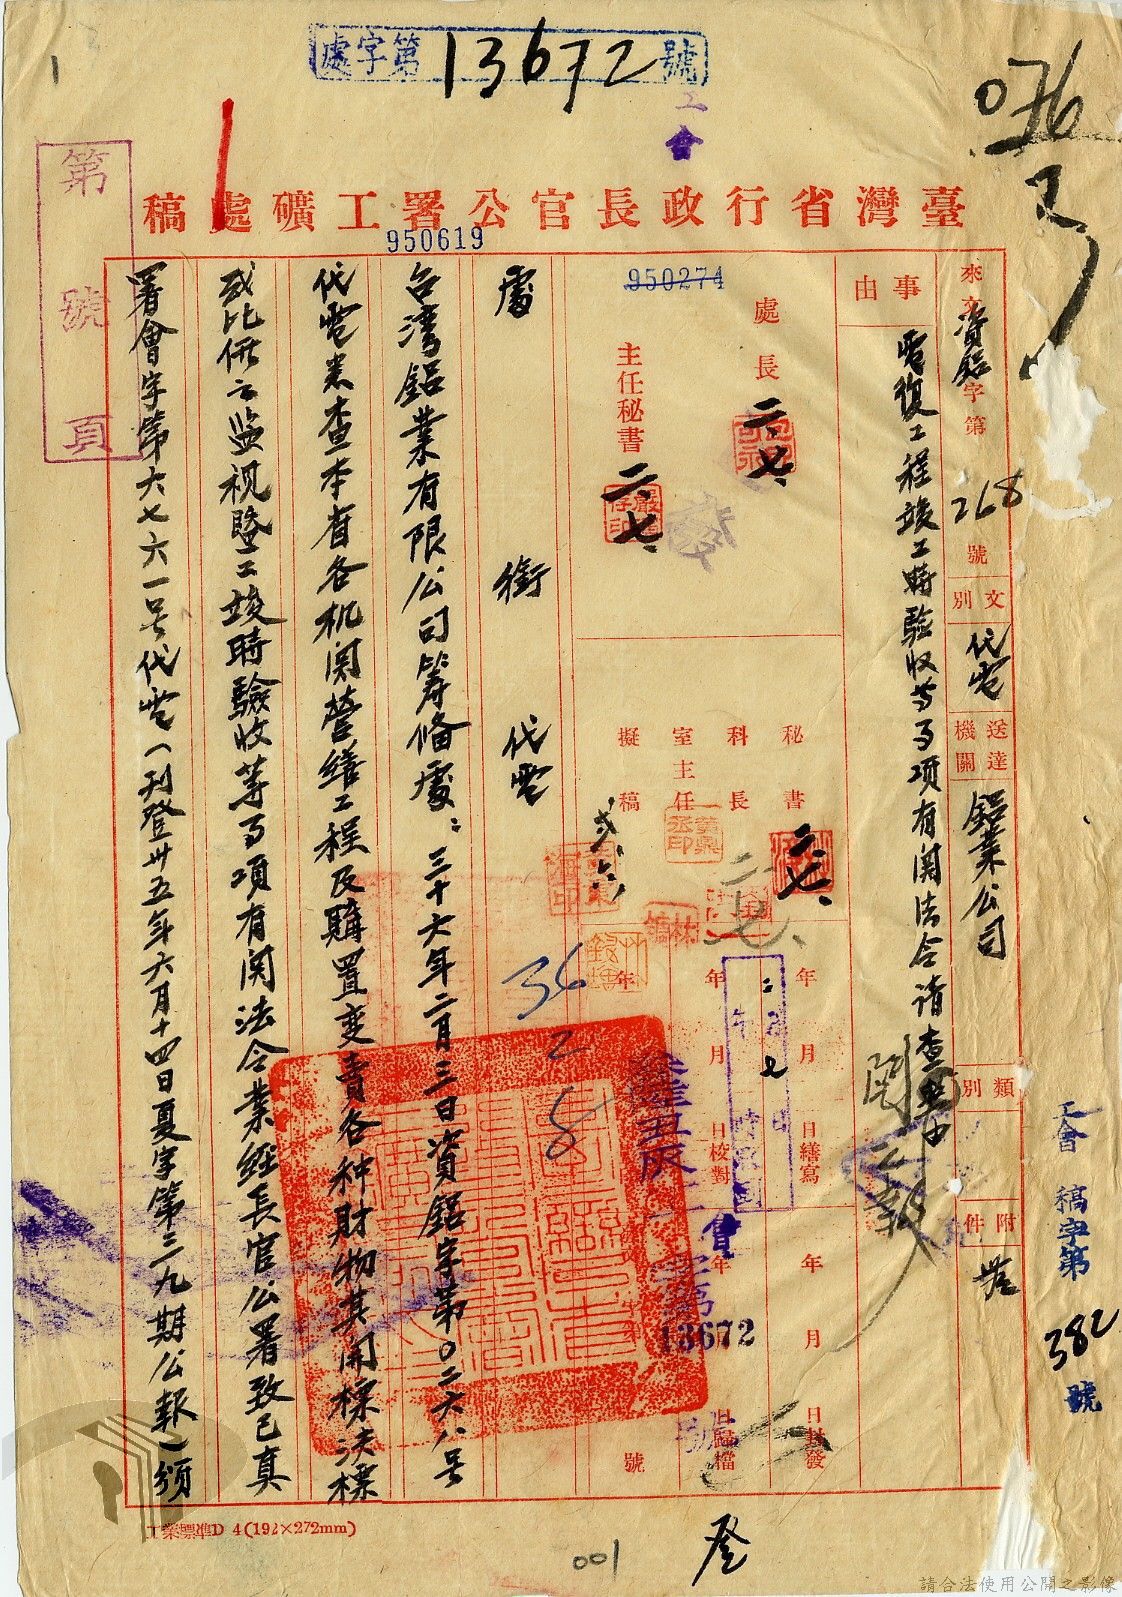 處字第13672號
工
會
1
076
臺灣省行政長官公署工礦處稿
950619
950274
第 號 頁
來文 資鋁字第268號
文別 代電
送達機關 鋁業公司
類別
附件 無
事由
電復工程竣工時驗收等事項有関法令請查照由
處長
二、七、
主任秘書
二、七、
發
秘書
二、七、
科長
室主任
擬稿
年 月 日繕寫
年 月 日校對
年 月 日封發
年 月 日歸檔
號
會
13672
處 銜 代電
36
2
8
台湾鋁業有限公司筹俻處：三十六年二月三日資鋁字第〇二六八号
代電悉查本省各机関營繕工程及購置变賣各种財物其開標決標
或比價之監視暨工竣時驗收等事項有関法令業經長官公署致已真
署會字第六七六一号代電（刊登卅五年六月十四日夏字第三九期公報）頒
工會 稿字第382號
工業標準D 4(192×272mm)
001
登
請合法使用公開之影像